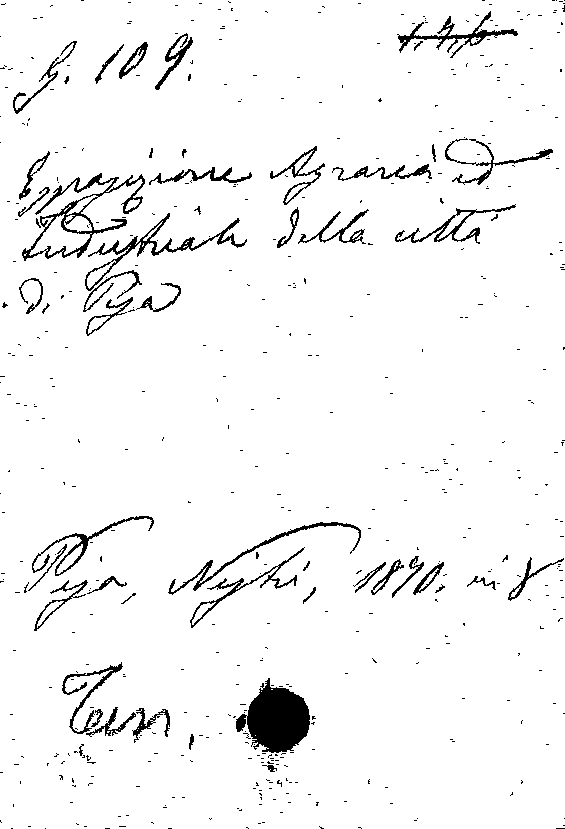 G. 109.
Esposizione Agraria ed
Industriale della città
di Pisa
Pisa, Nistri, 1870. in 8